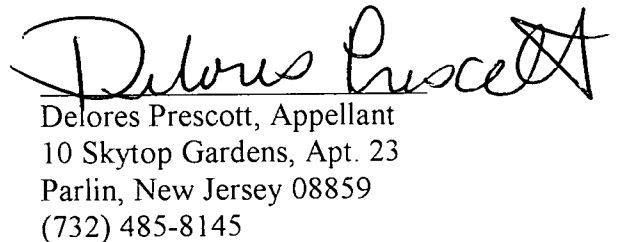 Delores Prescott
Delores Prescott, Appellant
10 Skytop Gardens, Apt. 23
Parlin, New Jersey 08859
(732) 485-8145